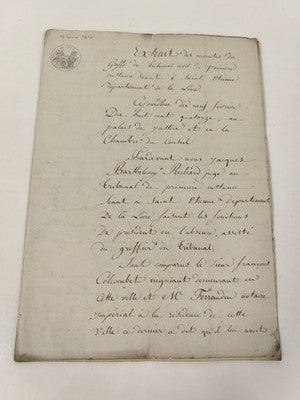 Extrait des minutes du
Greffe du tribunal civil de première
instance séante à Saint Etienne
département de la Loire.
Cejourdhui dix neuf février
Dix huit cent quatorze, au
palais de justice et en la
Chambre du Conseil
Pardevant nous jacques
Barthelemy juge au
tribunal de première instance
séant à Saint Etienne département
De la Loire faisant les fonctions
de président en l'absence, assisté
du greffier du tribunal,
Sont comparus le sieur françois
Colcombet négociant demeurant en
cette ville et Me Ferrandin notaire
impérial à la résidence de cette
Ville ce dernier a dit qu'il lui avoit